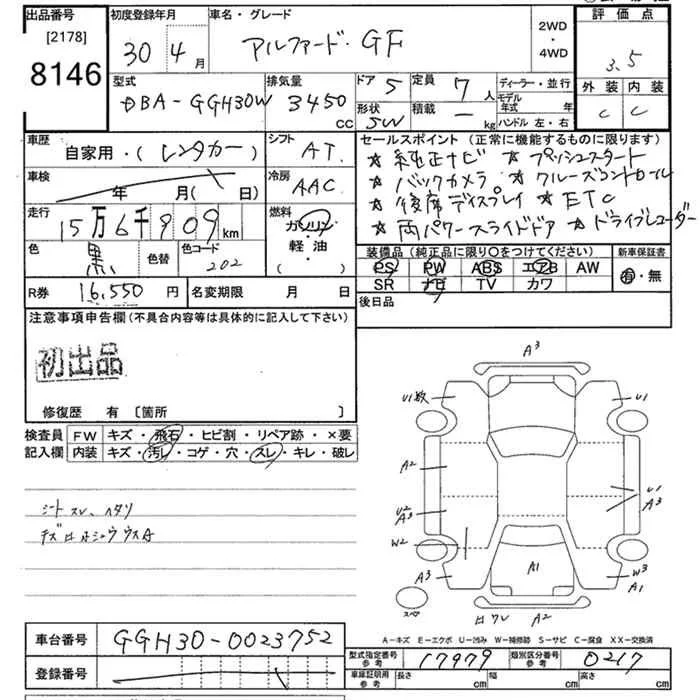 出品番号
[2178]
8146
初度登録年月
30年4月
車名・グレード
アルファード・GF
2WD
・
4WD
評価点
3.5
外装 内装
C C
型式
DBA-GGH30W
排気量
3450 CC
ドア 5
形状 SW
定員 7人
積載 ー kg
ディーラー・並行
モデル年式 年
ハンドル 左・右
車歴
自家用・(レンタカー)
シフト
AT
車検
年 月( 日)
冷房
AAC
走行
15万6千909km
燃料
ガソリン
軽・油
( )
色
黒
色替
色コード
202
R券 16,550円
名変期限 月 日
セールスポイント(正常に機能するものに限ります)
★純正ナビ ★プッシュスタート
★バックカメラ ★クルーズコントロール
★後席ディスプレイ ★ETC
★両パワースライドドア ★ドライブレコーダー
装備品(純正品に限り〇をつけてください)
PS PW ABS エアB AW
SR ナビ TV カワ
新車保証書
有・無
後日品
注意事項申告欄(不具合内容等は具体的に記入して下さい)
初出品
修復歴 有 〔箇所 〕
検査員記入欄
FW キズ・飛石・ヒビ割・リペア跡・×要
内装 キズ・汚レ・コゲ・穴・スレ・キレ・破レ
シートスレ、ヘタリ
A3
U1数
U1
A2
U2
A3
W2
A3
U1
A3
W3
A1
A1
スペア
ロワレ
A2
A-キズ E-エクボ U-凹み W-補修跡 S-サビ C-腐食 XX-交換済
車台番号 GGH30-0023752
登録番号
型式指定番号 参考 17979
類別区分番号 参考 0217
車庫証明用 参考 長さ cm 幅 cm 高さ cm